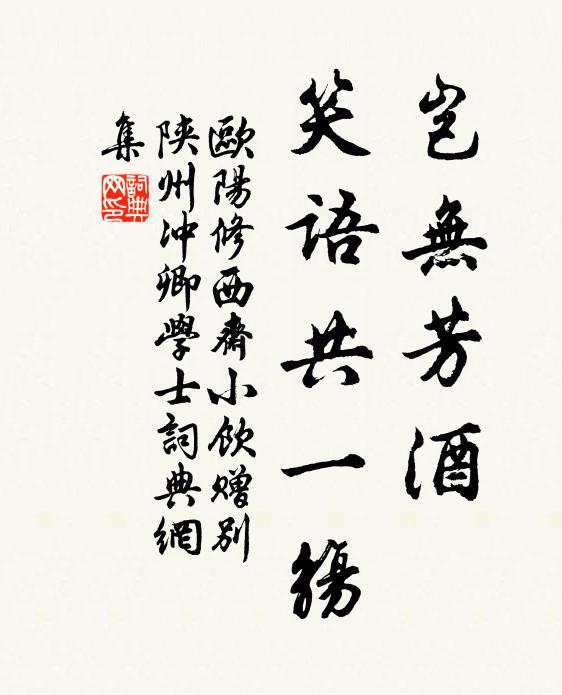 豈無芳酒
笑語共一觴
歐陽修西齋小飲贈別
陝州冲卿學士詞典網
集
詞典网印